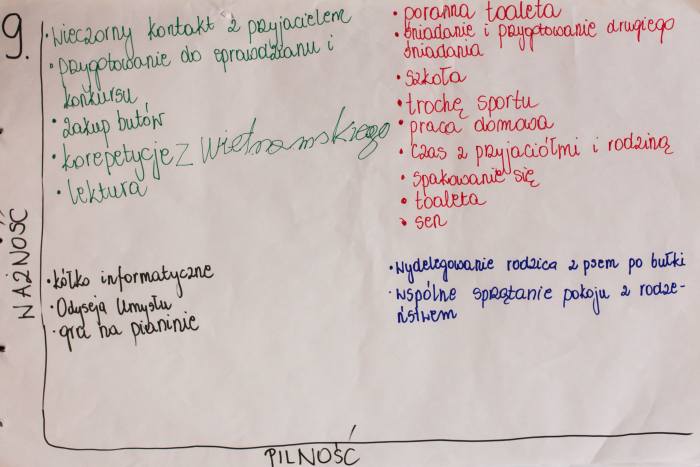 9.
• wieczorny kontakt z przyjacielem
• przygotowanie do sprawdzianu i
konkursu
• zakup butów
• korepetycje z Wietnamskiego
• lektura
• poranna toaleta
• śniadanie i przygotowanie drugiego
śniadania
• szkoła
• trochę sportu
• praca domowa
• czas z przyjaciółmi i rodziną
• spakowanie się
• toaleta
• sen
• kółko informatyczne
• Odyseja Umysłu
• gra na pianinie
• wydelegowanie rodzica z psem po bułki
• wspólne sprzątanie pokoju z rodze-
ństwem
WAŻNOŚĆ
PILNOŚĆ